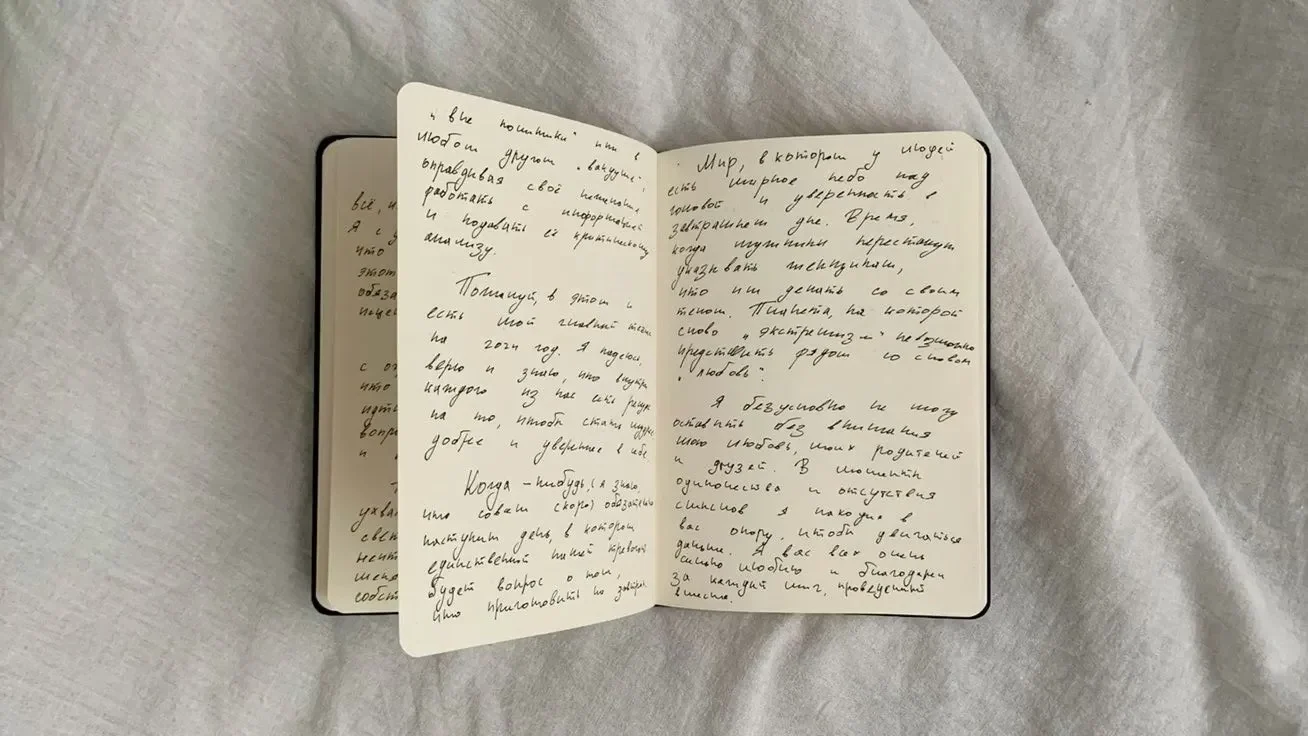 всё,
Я с у
что
этот
обяза
с о
что
идти
вопр
и
ухва
свет
мент
собст
„вне политики“ или в
любом другом „вакууме“,
оправдывая своё нежелание
работать с информацией
и подавать её критическому
анализу.
Пожалуй, в этом и
есть мой главный тезис
на 2024 год. Я надеюсь,
верю и знаю, что внутри
каждого из нас есть ресурс
на то, чтобы стать мудрее
добрее и увереннее в себе.
Когда-нибудь, (я знаю,
что совсем скоро) обязательно
наступит день, в котором
единственной нашей тревогой
будет вопрос о том,
что приготовить на завтрак.
Мир, в котором у людей
есть мирное небо над
головой и уверенность в
завтрашнем дне. Время,
когда мужчины перестанут
указывать женщинам,
что им делать со своим
телом. Планета, на которой
слово „экстремизм“ невозможно
представить рядом со словом
„любовь“.
Я безусловно не могу
оставить без внимания
мою любовь, моих родителей
и друзей. В моменты
одиночества и отсутствия
смыслов я находил в
вас опору, чтобы двигаться
дальше. Я вас всех очень
сильно люблю и благодарен
за каждый миг, проведённый
вместе.